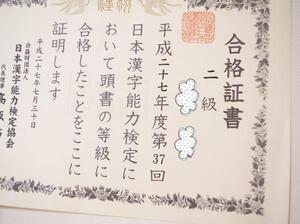 合格証書
二級
平成二十七年度第37回
日本漢字能力検定に
おいて頭書の等級に
合格したことをここに
証明します
平成二十七年七月三十日
公益財団法人
日本漢字能力検定協会
代表理事 髙坂